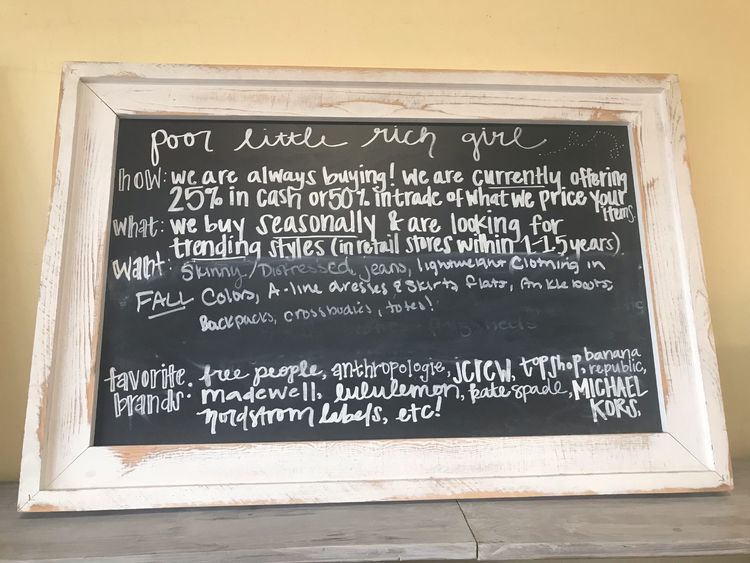 poor little rich girl
how: we are always buying! we are currently offering
25% in cash or 50% in trade of what we price your
items.
what: we buy seasonally & are looking for
trending styles (in retail stores within 1-1.5 years)
want: Skinny/Distressed jeans, lightweight clothing in
FALL colors, A-line dresses & skirts, flats, Ankle boots,
Backpacks, crossbodies, totes!
favorite brands: free people, anthropologie, jcrew, topshop, banana republic,
madewell, lululemon, kate spade, MICHAEL KORS,
nordstrom labels, etc!